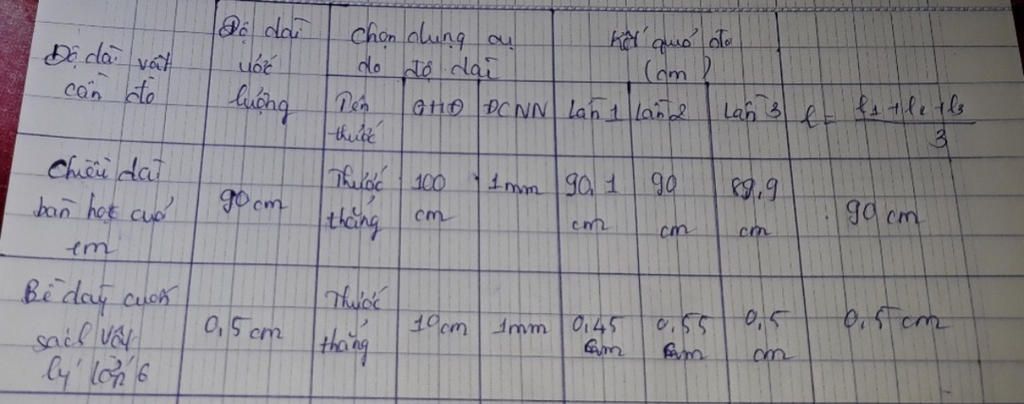 Độ dài vật cần đo
Độ dài ước lượng
Chọn dụng cụ đo độ dài
Kết quả đo (cm)
Tên thước
GHĐ
ĐCNN
Lần 1
Lần 2
Lần 3
l = l1 + l2 + l3 / 3
Chiều dài bàn học của em
90 cm
Thước thẳng
100 cm
1mm
90,1 cm
90 cm
89,9 cm
90 cm
Bề dày cuốn sách vật lý lớp 6
0,5 cm
Thước thẳng
10cm
1mm
0,45 cm
0,55 cm
0,5 cm
0,5 cm